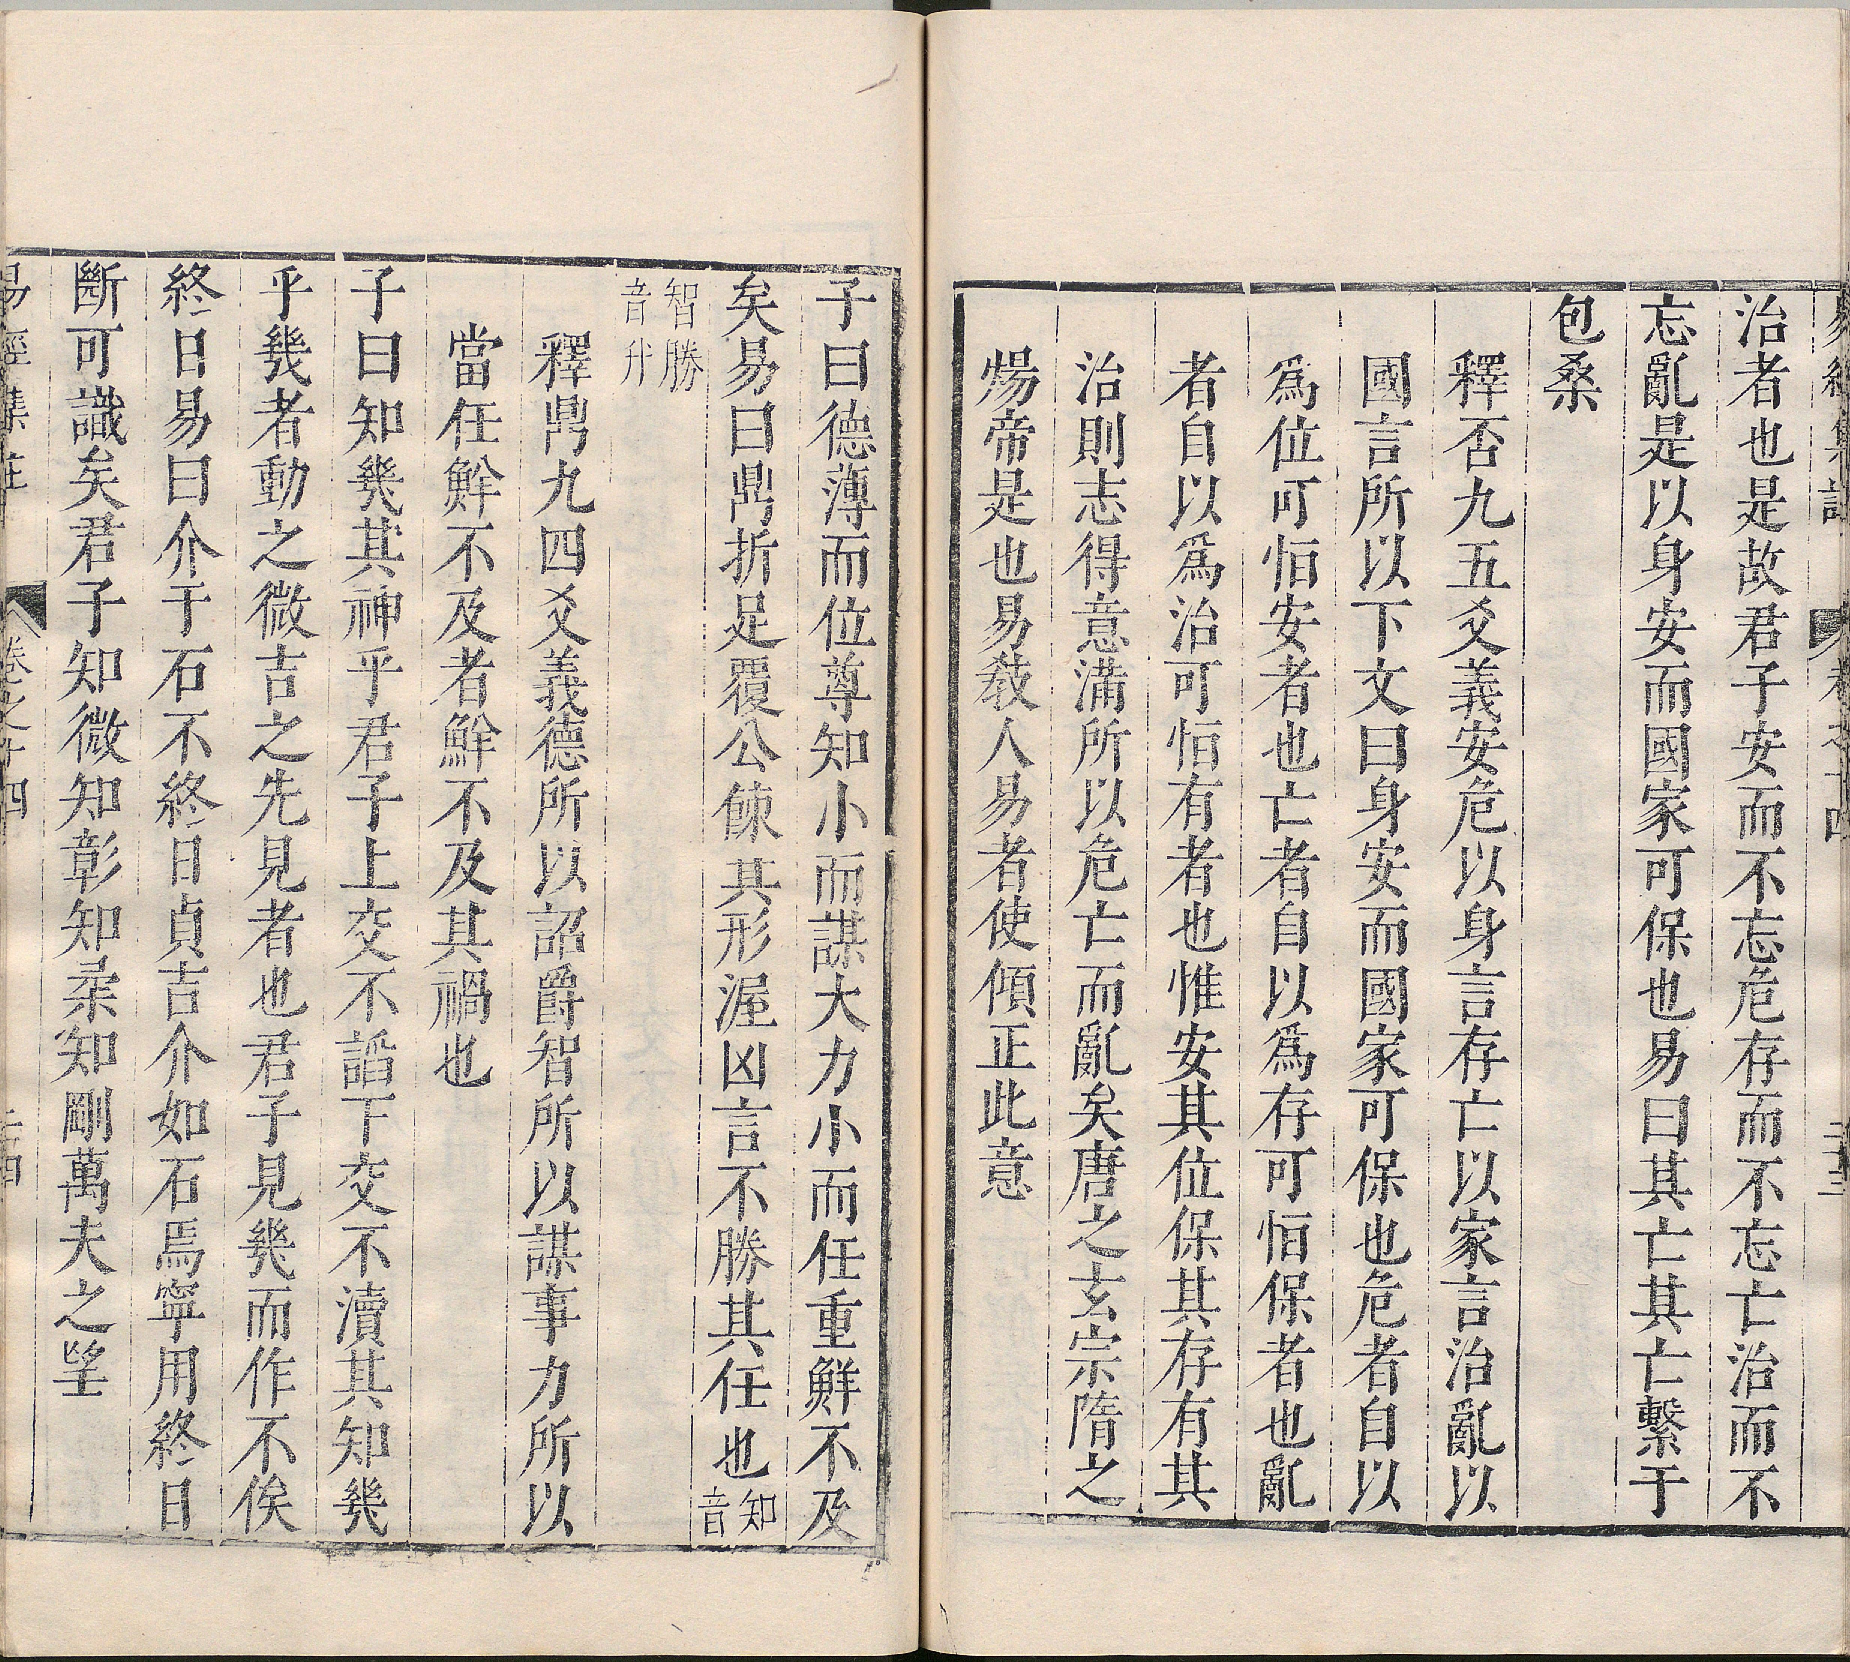 易經集註 卷之十四 二十三
治者也是故君子安而不忘危存而不忘亡治而不
忘亂是以身安而國家可保也易曰其亡其亡繫于
包桑
釋否九五爻義安危以身言存亡以家言治亂以
國言所以下文曰身安而國家可保也危者自以
爲位可恒安者也亡者自以爲存可恒保者也亂
者自以爲治可恒有者也惟安其位保其存有其
治則志得意滿所以危亡而亂矣唐之玄宗隋之
煬帝是也易教人易者使傾正此意
子曰德薄而位尊知小而謀大力小而任重鮮不及
矣易曰鼎折足覆公餗其形渥凶言不勝其任也知音
智勝音升
釋鼎九四爻義德所以詔爵智所以謀事力所以
當任鮮不及者鮮不及其禍也
子曰知幾其神乎君子上交不諂下交不瀆其知幾
乎幾者動之微吉之先見者也君子見幾而作不俟
終日易曰介于石不終日貞吉介如石焉寧用終日
斷可識矣君子知微知彰知柔知剛萬夫之望
易經集註 卷之十四 二十四